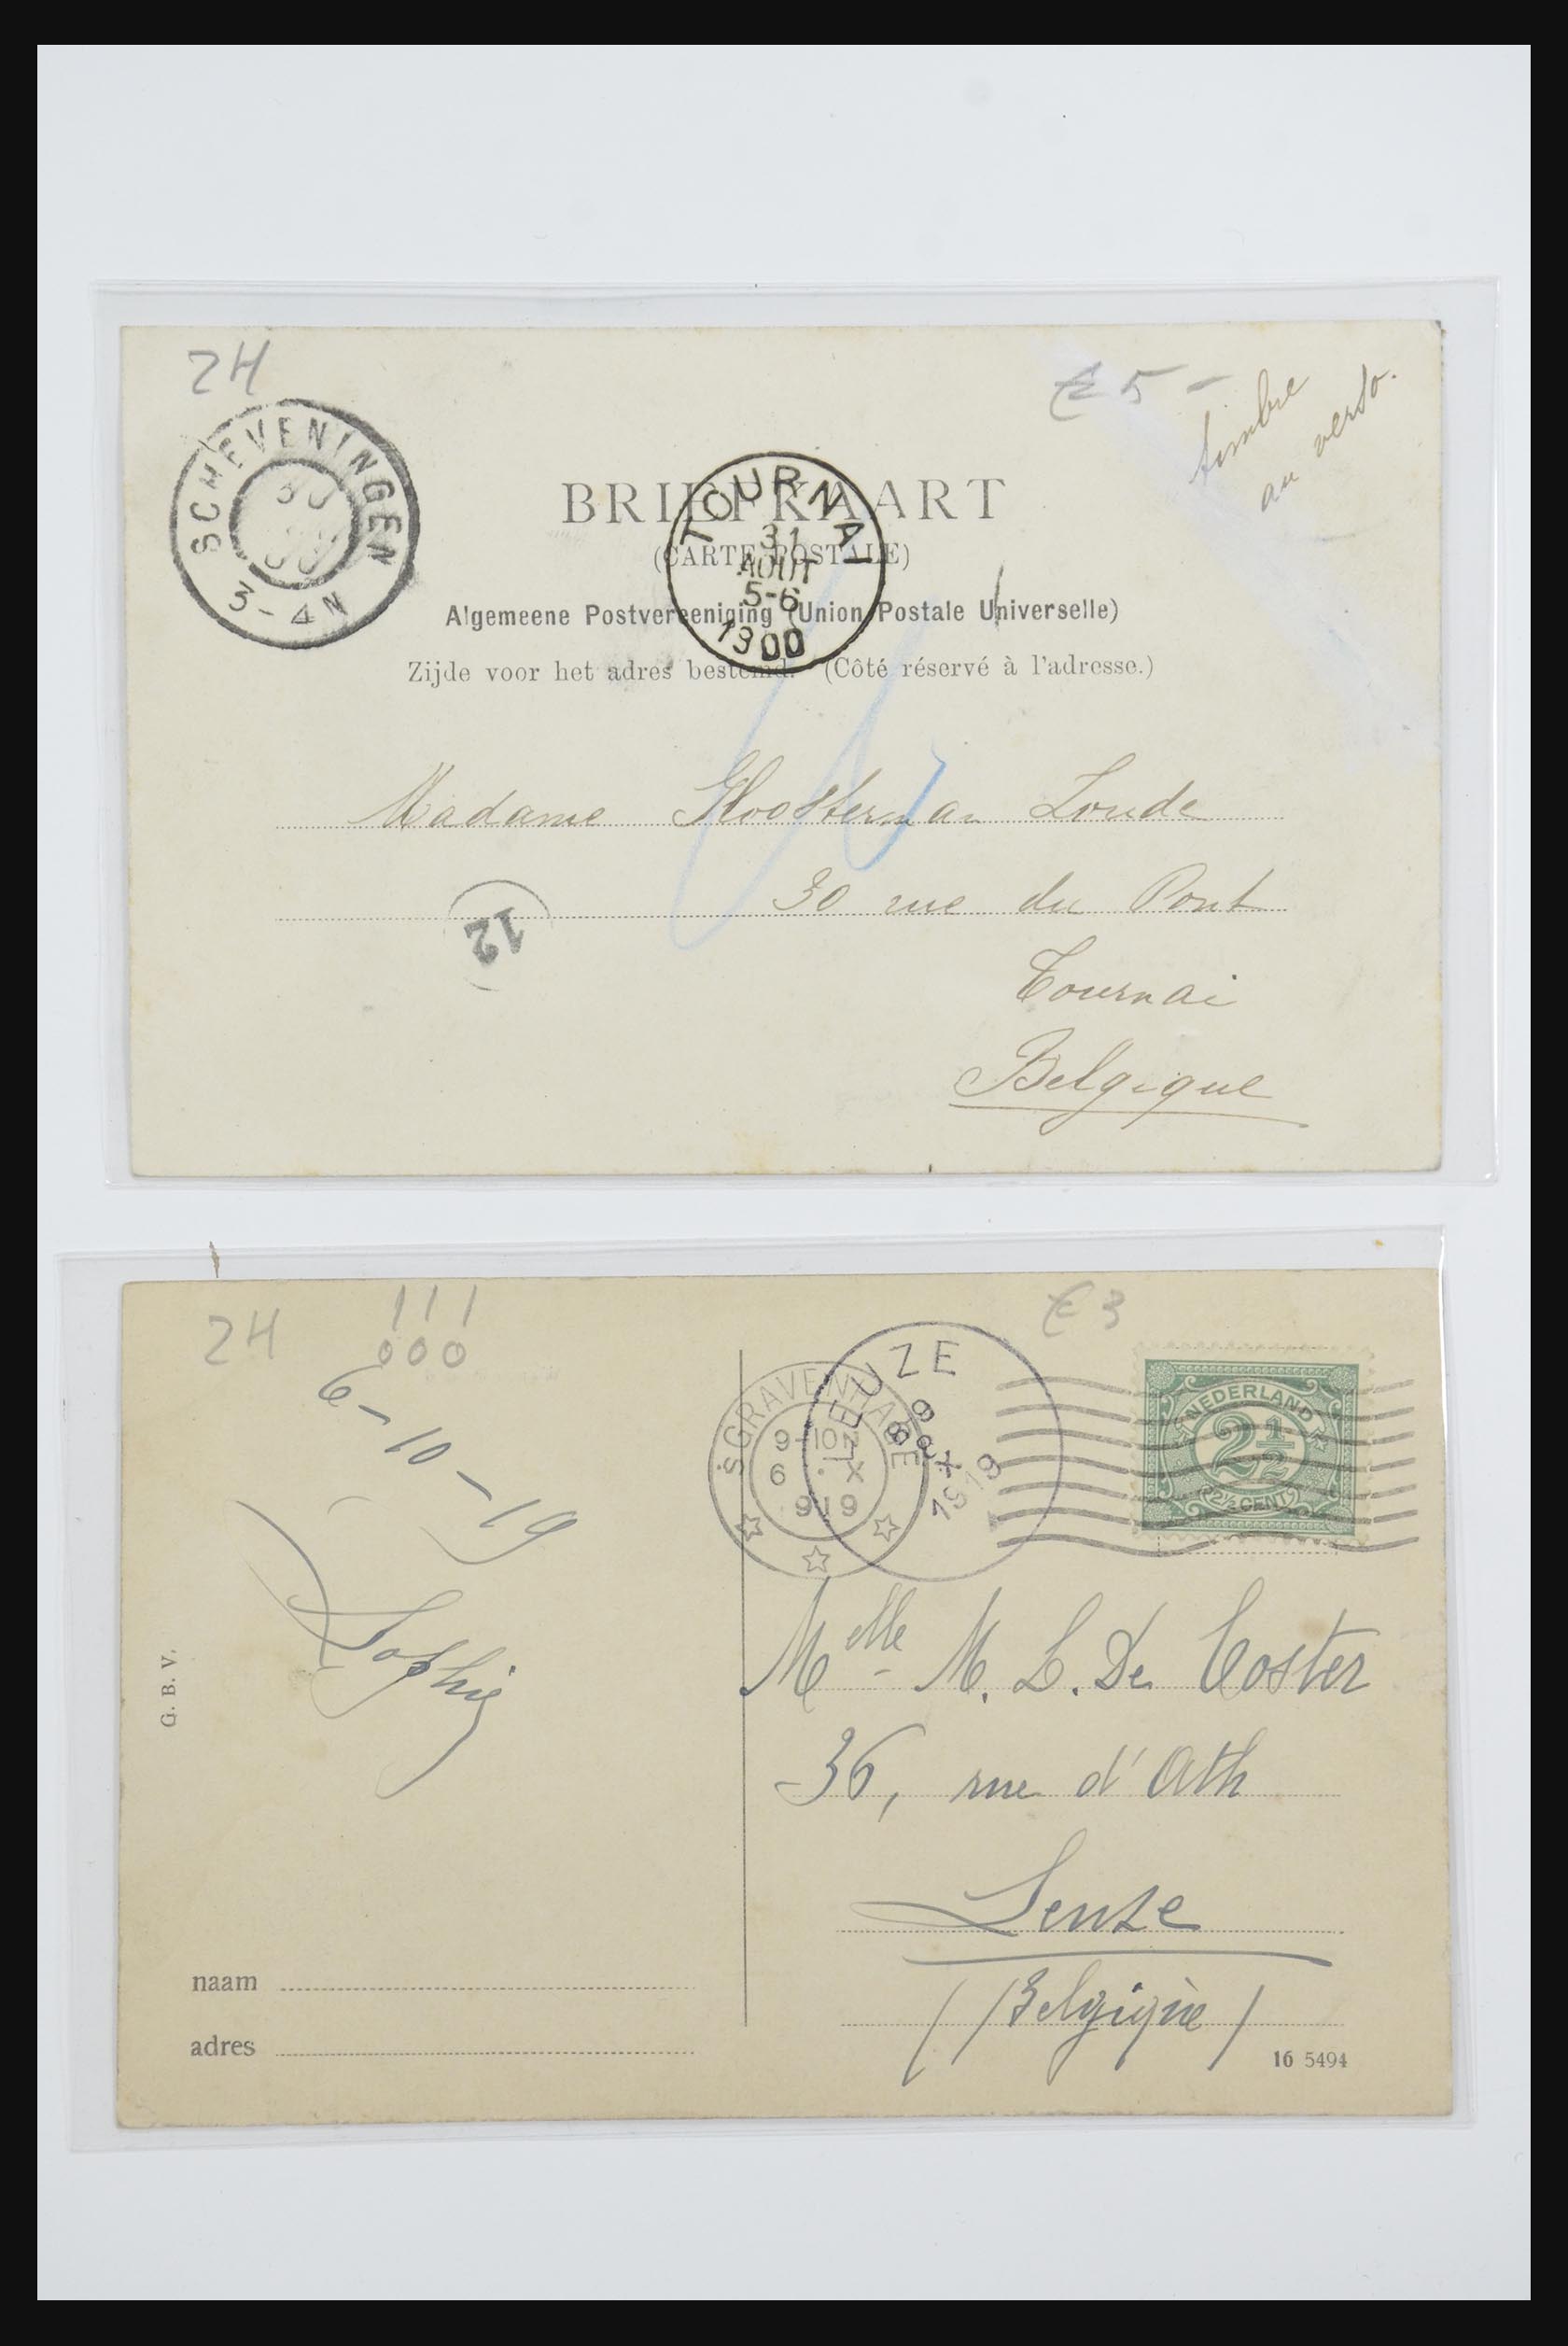 ZH
€ 5 -
timbre
au verso.
SCHEVENINGEN
3-4N
TOURNAI
31
AOUT
5-6
1900
BRIEFKAART
(CARTE POSTALE)
Algemeene Postvereeniging (Union Postale Universelle)
Zijde voor het adres bestemd. (Côté réservé à l'adresse.)
Madame Kloosterman Loude
30 rue du Pont
12
Tournai
Belgique
ZH
111
000
€ 3
6-10-19
Sophie
'SGRAVENHAGE
9-10N
6 X
919
LEUZE
1919
NEDERLAND
2½
2½ CENT
Melle M. L. De Coster
36, rue d'Ath
Leuze
(Belgique)
G. B. V.
naam
adres
16 5494